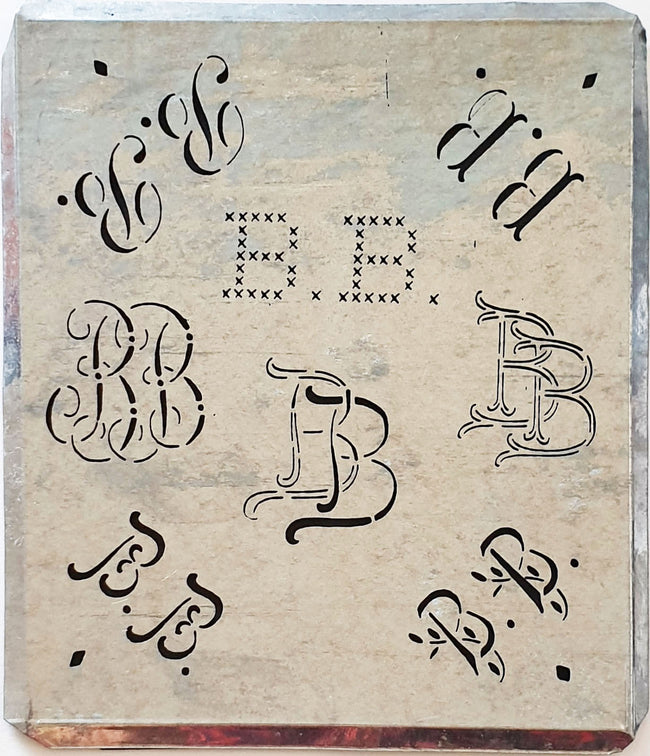 B.B.
B.B.
B.B.
BB
BB
BB
B.B.
B.B.